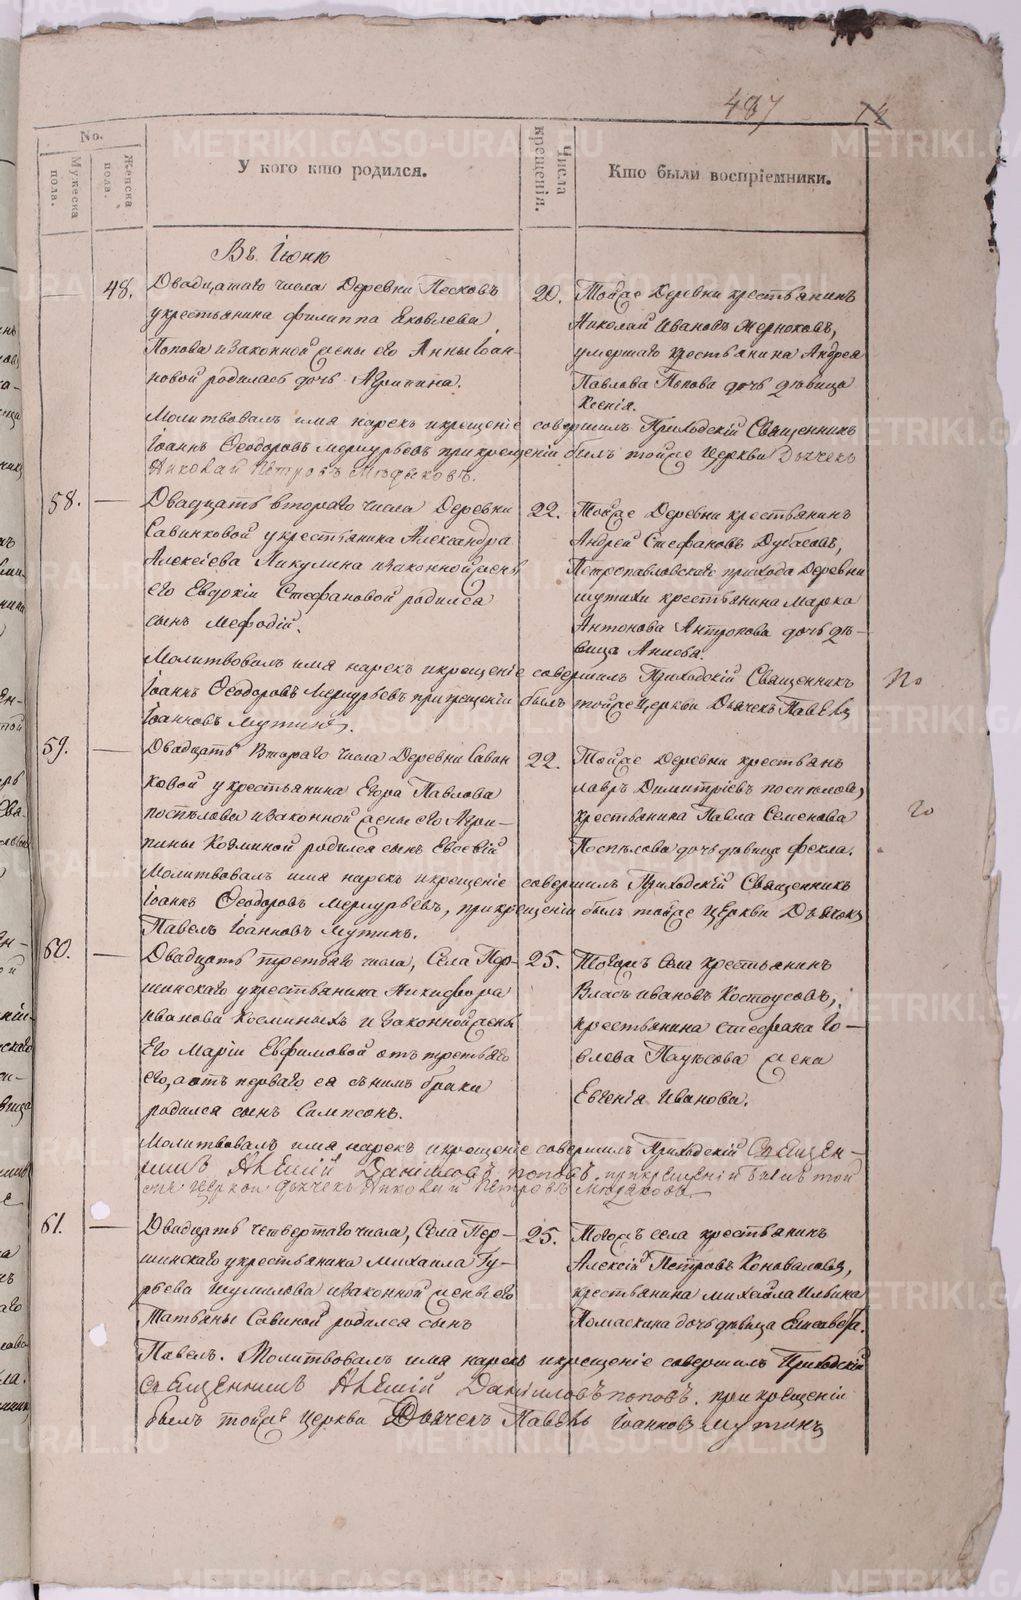 487
No.
Мужеска пола.
Женска пола.
У кого кто родился.
Числа крещенія.
Кто были воспріемники.
Въ Іюнѣ
48. Двадцатаго числа Деревни Песковъ
у крестьянина Филиппа Яковлева
Попова и законной жены его Анны Іоан-
новой родилась дочь Агрипина.
20. Тойже Деревни крестьянинъ
Николай Ивановъ
умершаго крестьянина Андрея
Павлова Попова дочь дѣвица
Ксенія.
Молитвовалъ имя нарекъ и крещеніе совершилъ Приходскій Священникъ
Іоаннъ Ѳеодоровъ Меркурьевъ при крещеніи былъ тойже Церкви Дьячекъ
Николай Петровъ
58. Двадцать втораго числа Деревни
Савинковой у крестьянина Александра
Алексѣева Никулина и законной жены
его Евдокіи Стефановой родился
сынъ Меѳодій.
22. Тойже Деревни крестьянинъ
Андрей Стефановъ Дубасовъ,
Петропавловскаго прихода Деревни
Шутихи крестьянина Марка
Антонова Антропова дочь дѣ-
вица Анисья.
Молитвовалъ имя нарекъ и крещеніе совершилъ Приходскій Священникъ
Іоаннъ Ѳеодоровъ Меркурьевъ при крещеніи былъ тойже Церкви Дьячекъ Павелъ
Іоанновъ Мутинъ.
59. Двадцать Втораго числа Деревни Савин
ковой у крестьянина Егора Павлова
Поспѣлова и законной жены его Агри-
пины Козминой родился сынъ Евсевій
22. Тойже Деревни крестьянъ
Лавръ Димитріевъ Поспѣловъ,
крестьянина Павла Семенова
Поспѣлова дочь дѣвица Фекла.
Молитвовалъ имя нарекъ и крещеніе совершилъ Приходскій Священникъ
Іоаннъ Ѳеодоровъ Меркурьевъ, при крещеніи былъ тойже Церкви Дьячекъ
Павелъ Іоанновъ Мутинъ.
60. Двадцать третьяго числа, Села Пер-
шинскаго у крестьянина Никифора
Иванова Косминыхъ и законной жены
Его Маріи Евфимовой отъ третьяго
его, а отъ перваго ея съ нимъ брака
родился сынъ Сампсонъ.
25. Тогожъ Села крестьянинъ
Власъ Ивановъ Костоусовъ,
крестьянина Стефана Іо-
влева Паужова жена
Евгенія Иванова.
Молитвовалъ имя нарекъ и крещеніе совершилъ Приходскій Священ-
никъ Даниловъ Поповъ. при крещеніи былъ той
же Церкви Дьячекъ Николай Петровъ
61. Двадцать четвертаго числа, Села Пер-
шинскаго у крестьянина Михаила Гу-
рьева Шумилова и законной жены его
Татьяны Савиной родился сынъ
25. Тогожъ села крестьянинъ
Алексій Петровъ Коноваловъ,
крестьянина Михайла Ильина
Ломаскина дочь дѣвица Елисавета.
Павелъ. Молитвовалъ имя нарекъ и крещеніе совершилъ Приходскій
Священникъ Даниловъ Поповъ. при крещеніи
былъ тойже Церкви Дьячекъ Павелъ Іоанновъ Мутинъ
METRIKI.GASO-URAL.RU